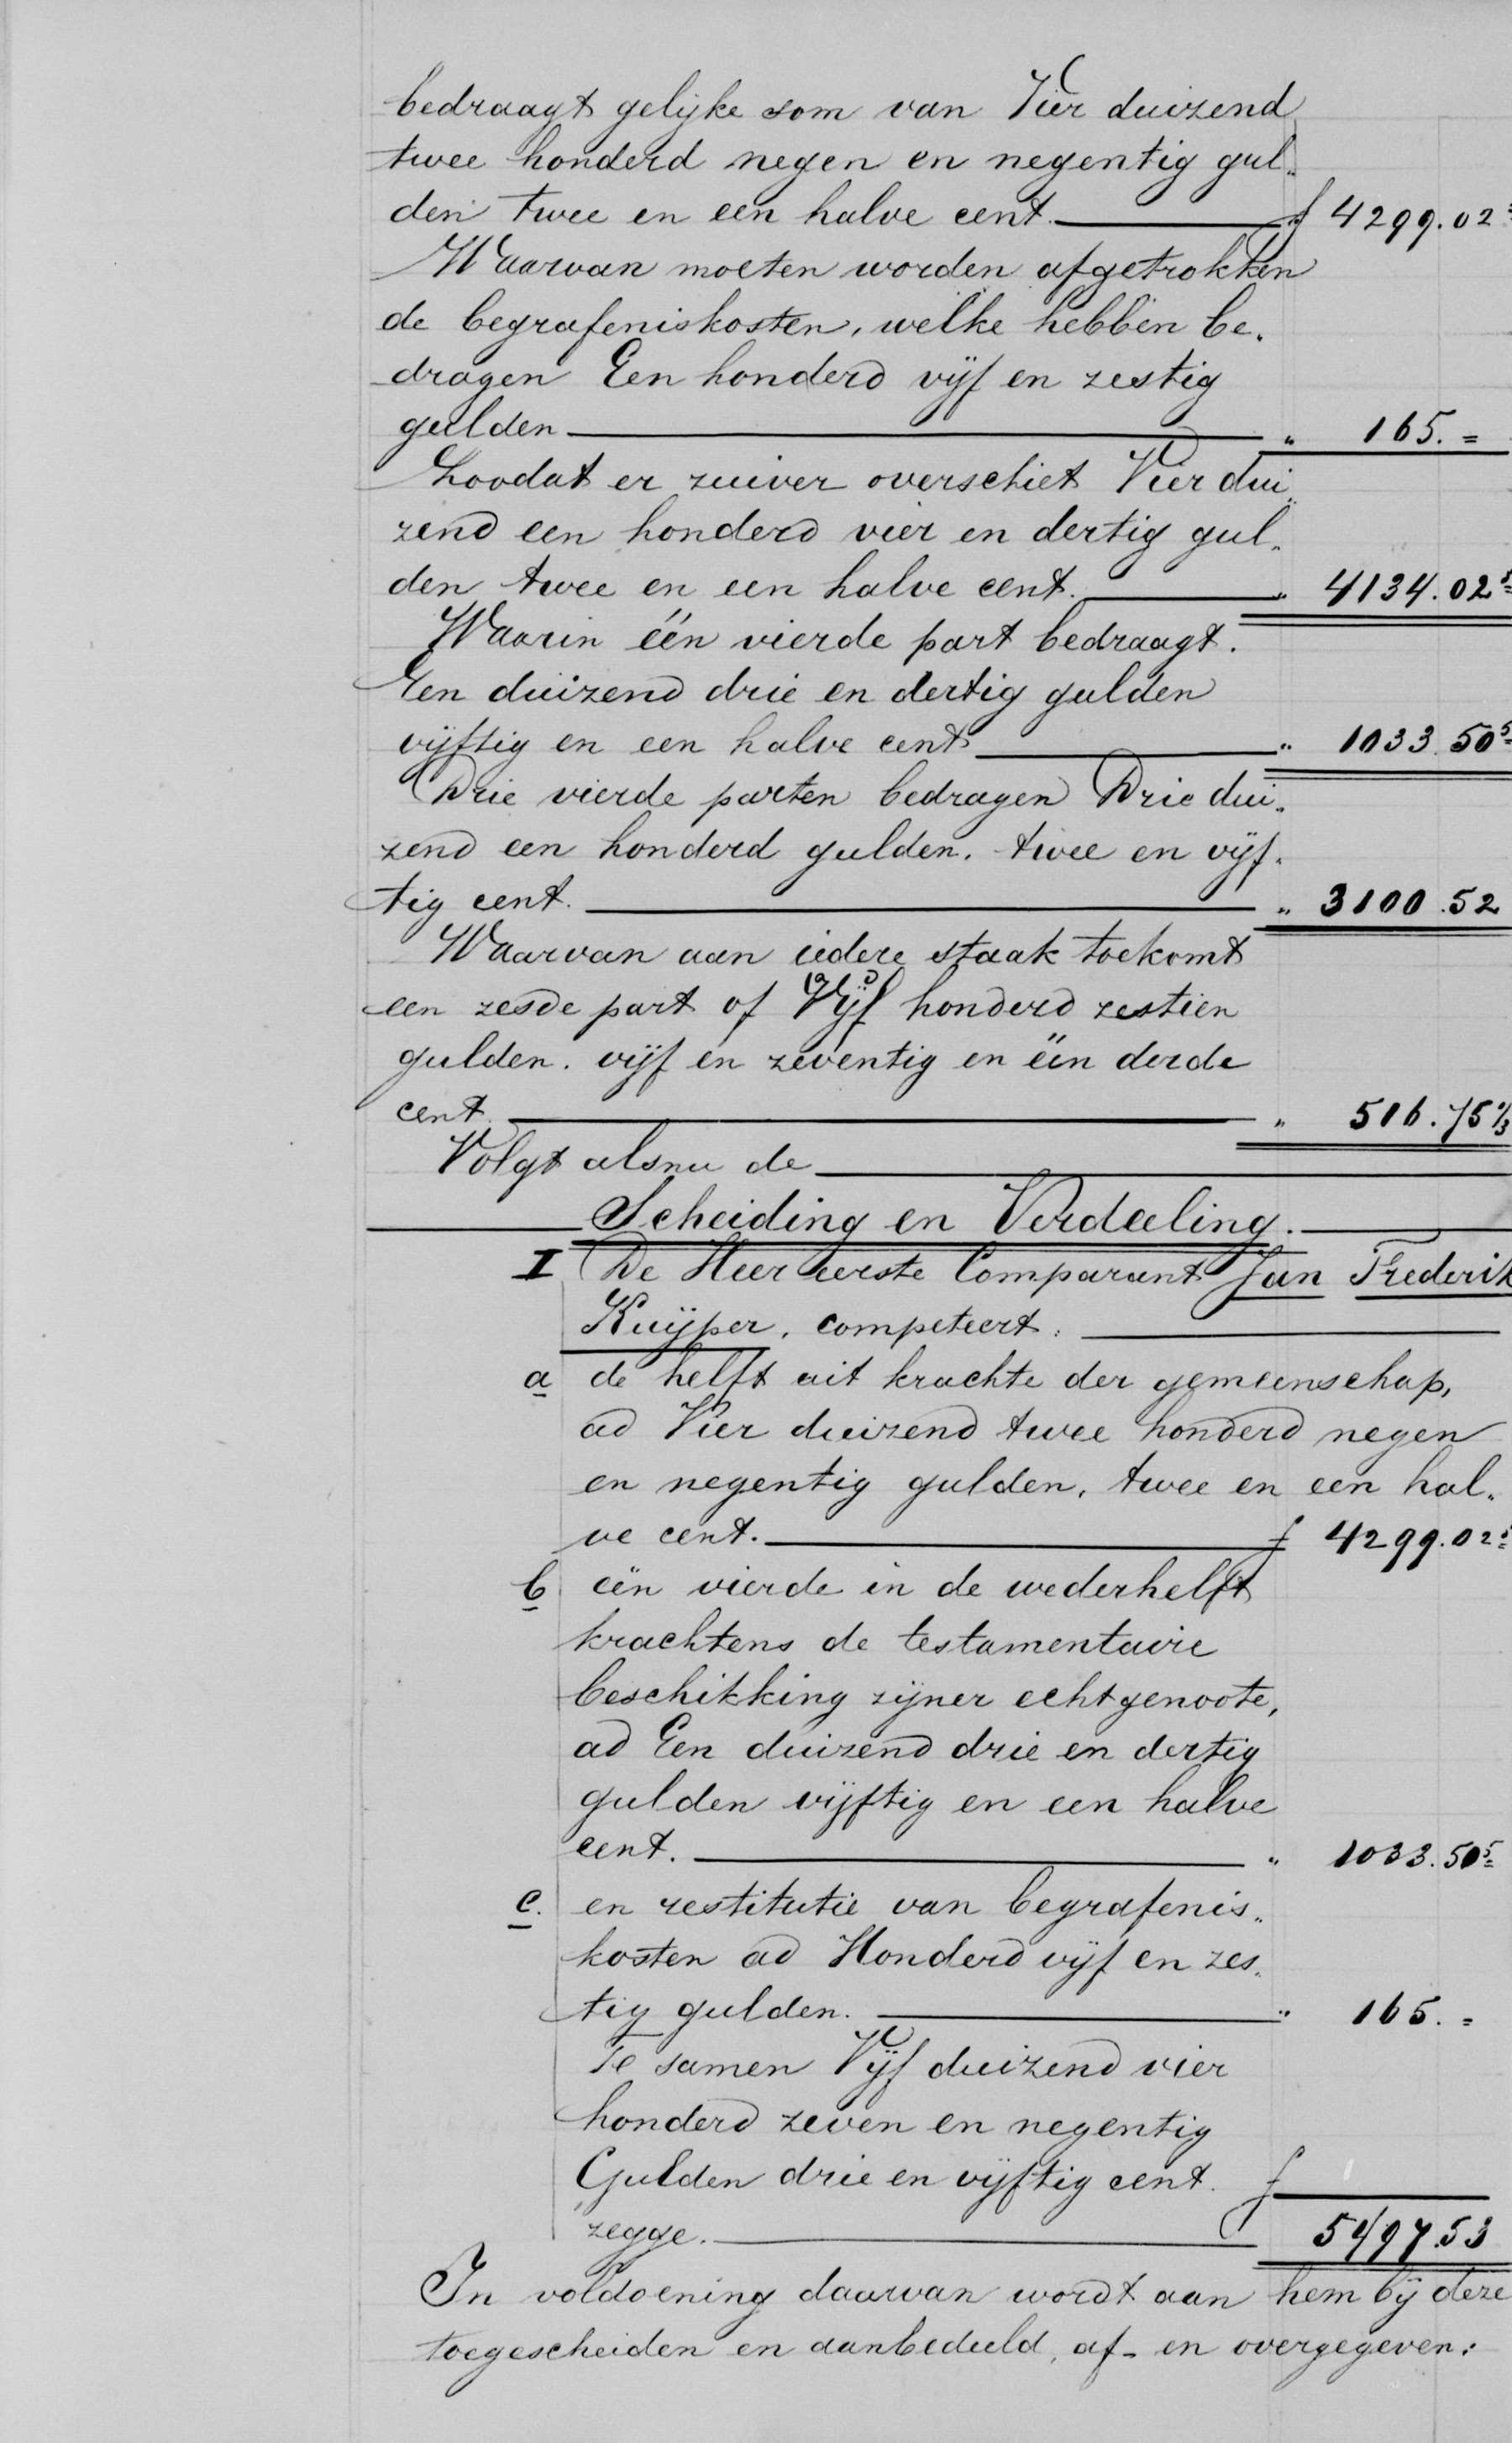 bedraagt gelijke som van Vier duizend
twee honderd negen en negentig gul„
den twee en een halve cent. ƒ 4299.02⁵
Waarvan moeten worden afgetrokken
de begrafeniskosten, welke hebben be„
dragen Een honderd vijf en zestig
gulden „ 165.=
Zoodat er zuiver overschiet Vier dui„
zend een honderd vier en dertig gul„
den twee en een halve cent. „ 4134.02⁵
Waarin één vierde part bedraagt.
Een duizend drie en dertig gulden
vijftig en een halve cent „ 1033.50⁵
Drie vierde parten bedragen Drie dui„
zend een honderd gulden. twee en vijf„
tig cent. „ 3100.52
Waarvan aan iedere staak toekomt
een zesde part of Vijf honderd zestien
gulden. vijf en zeventig en één derde
cent. „ 516.75⅓
Volgt alsnu de
Scheiding en Verdeeling.
I De Heer eerste Comparant Jan Frederik
Kuijper, competeert:
a de helft uit krachte der gemeenschap,
ad Vier duizend twee honderd negen
en negentig gulden, twee en een hal„
ve cent. ƒ 4299.02⁵
b één vierde in de wederhelft
krachtens de testamentaire
beschikking zijner echtgenoote,
ad Een duizend drie en dertig
gulden vijftig en een halve
cent. „ 1033.50⁵
c. en restitutie van begrafenis„
kosten ad Honderd vijf en zes„
tig gulden. „ 165.=
Te samen Vijf duizend vier
honderd zeven en negentig
Gulden drie en vijftig cent. ƒ
zegge. 5497.53
In voldoening daarvan wordt aan hem bij deze
toegescheiden en aanbedeeld, af- en overgegeven: